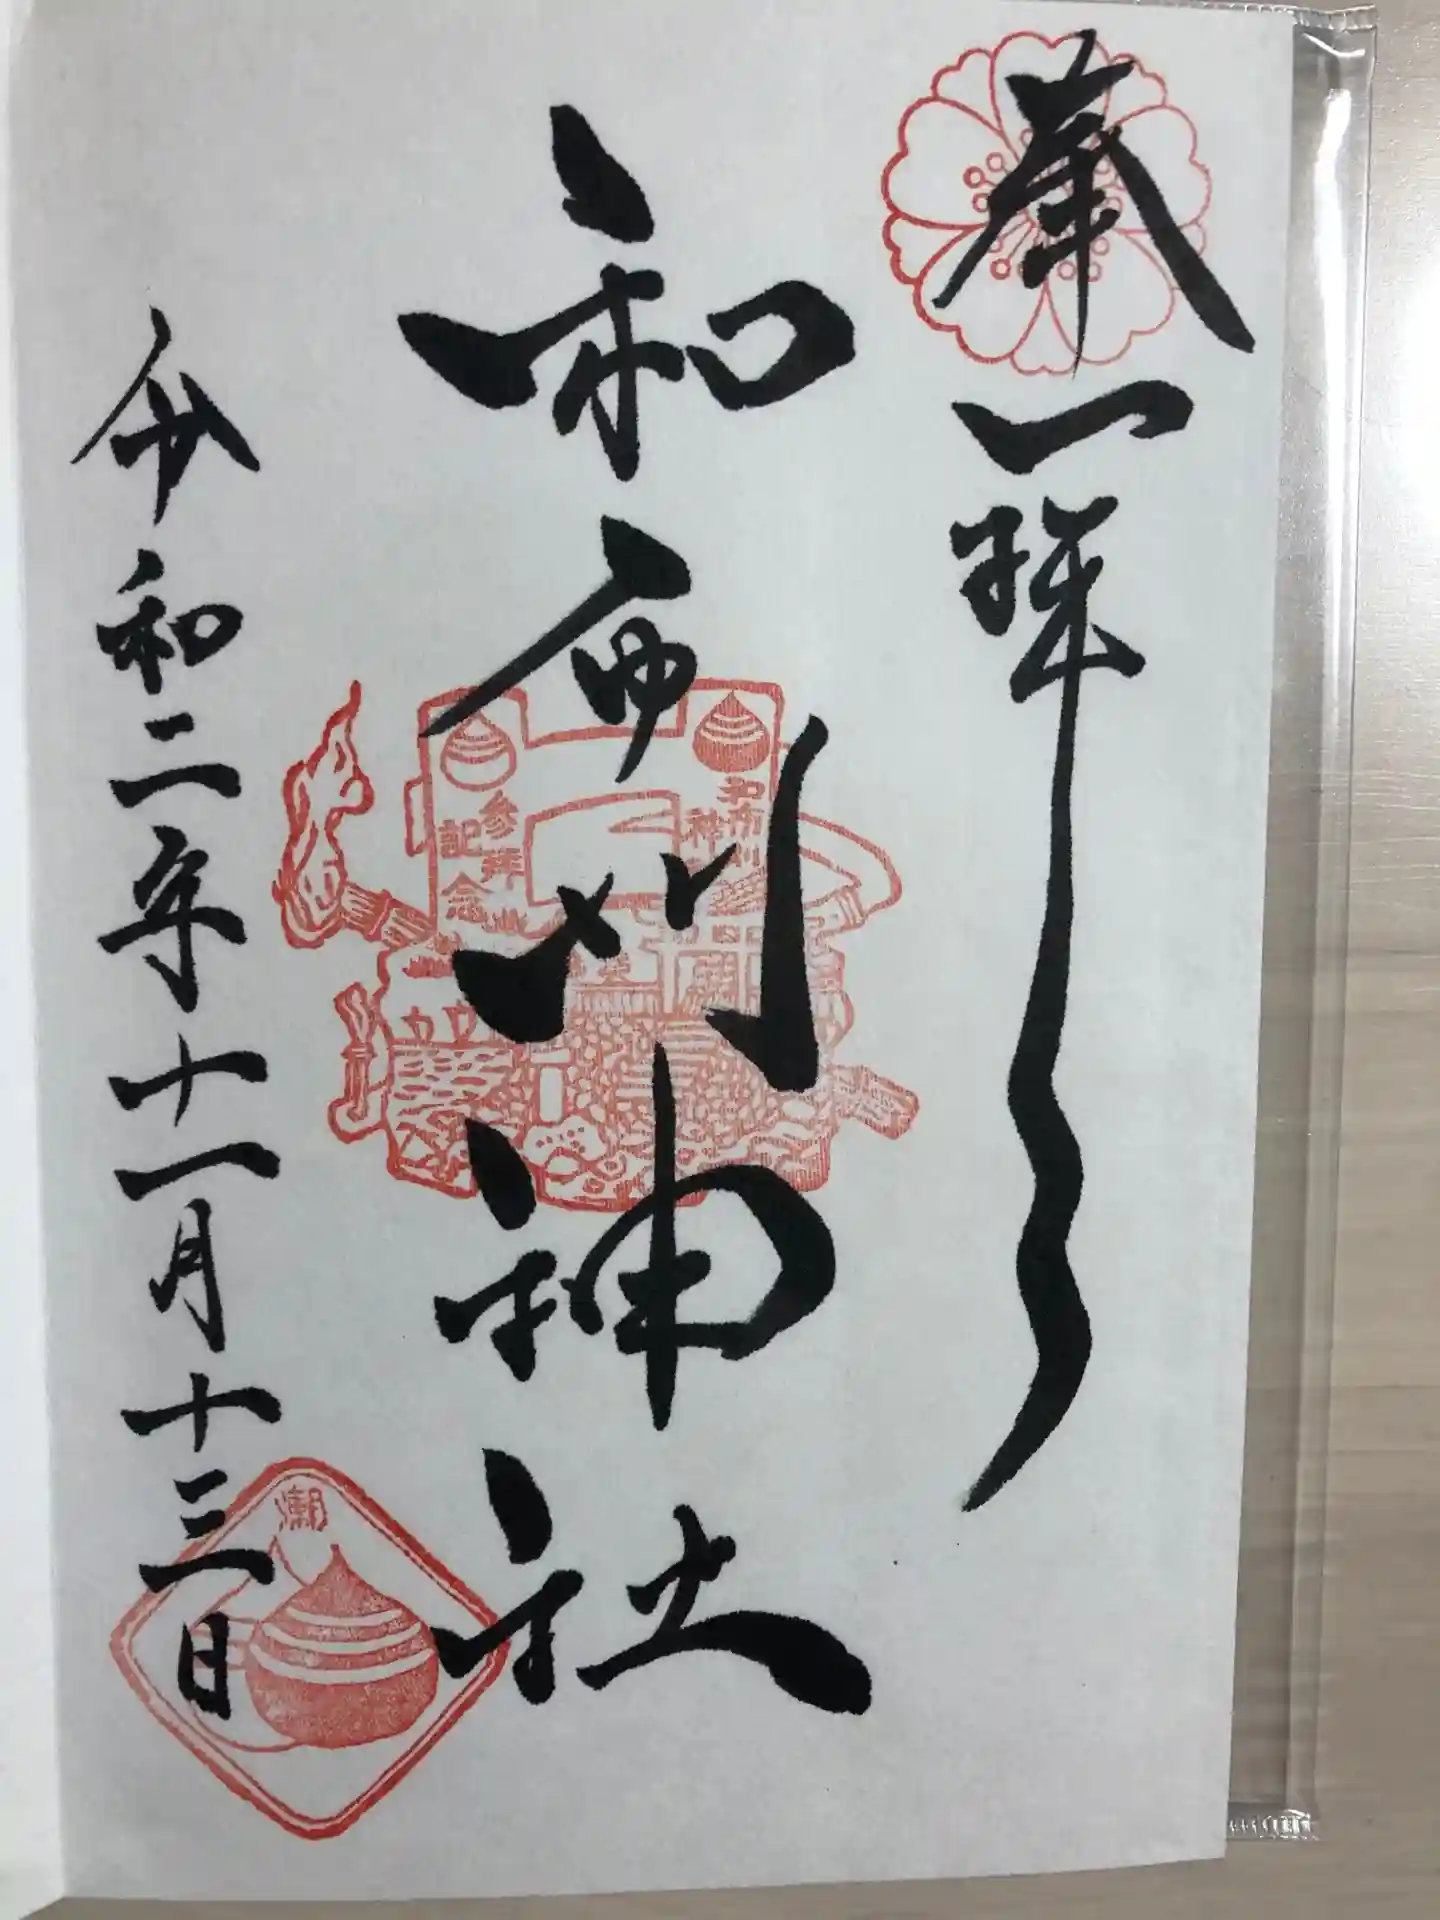 奉拝
和布刈神社
令和二年十一月十三日
和布刈
神
参拝
記念
潮